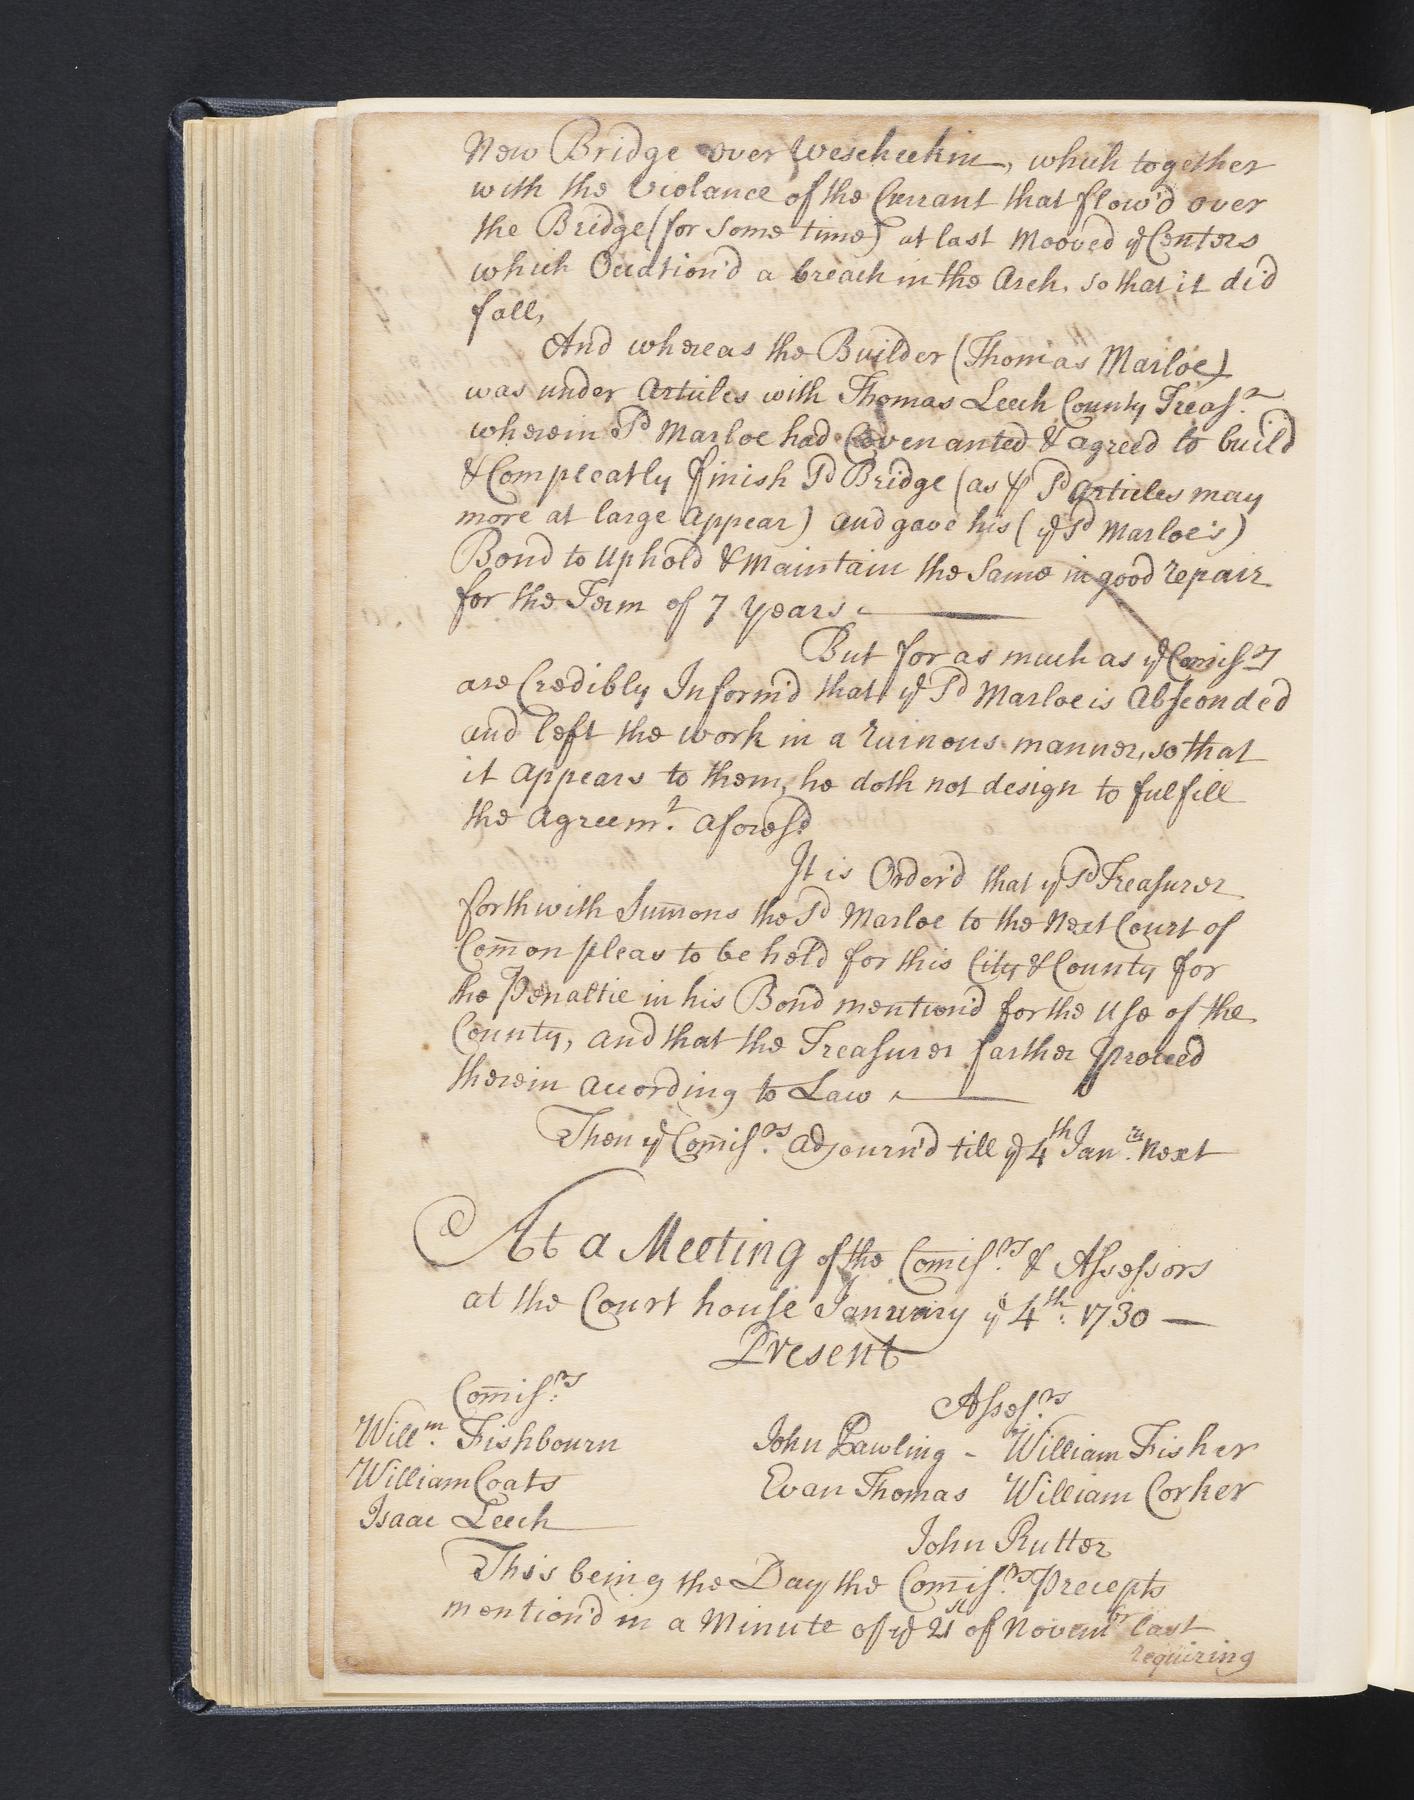 New Bridge over Wescheckin, which together
with the Violance of the Currant that flow'd over
the Bridge (for some time) at last Mooved yᵉ Centers
which Occation'd a breach in the Arch, so that it did
fall,
And whereas the Builder (Thomas Marloe)
was under Articles with Thomas Leech County Treasʳ
wherein Sd Marloe had Covenanted & agreed to build
& Compleatly finish Sd Bridge (as ⅌ Sd Articles may
more at large Appear) and gave his (yᵉ Sd Marloe's)
Bond to uphold & Maintain the Same in good repair
for the Term of 7 Years.
But for as much as yᵉ Comisʳˢ
are Credibly Inform'd that yᵉ Sd Marloe is Absconded
and left the work in a ruinous manner, so that
it Appears to them, he doth not design to fulfill
the Agreemᵗ. aforesd
It is Order'd that yᵉ Sd Treasurer
forthwith Sum̄ons the Sd Marloe to the Next Court of
Com̄on pleas to be held for this City & County for
the Penaltie in his Bond mention'd for the Use of the
County, and that the Treasurer farther proceed
therein according to Law
Then yᵉ Com̄isʳˢ. adjourn'd till yᵉ 4ᵗʰ Janʳʸ. Next
At a Meeting of the Com̄isʳˢ. & Assessors
at the Court house January yᵉ 4ᵗʰ: 1730 —
Present
Com̄isʳˢ:
Assesʳˢ.
Willᵐ. Fishbourn
John Pawling - William Fisher
William Coats
Evan Thomas William Corker
Isaac Leech
John Rutter
This being the Day the Com̄isʳˢ. Precepts
mention'd in a Minute of yᵉ 21ˢᵗ of Novemᵇʳ last
requiring